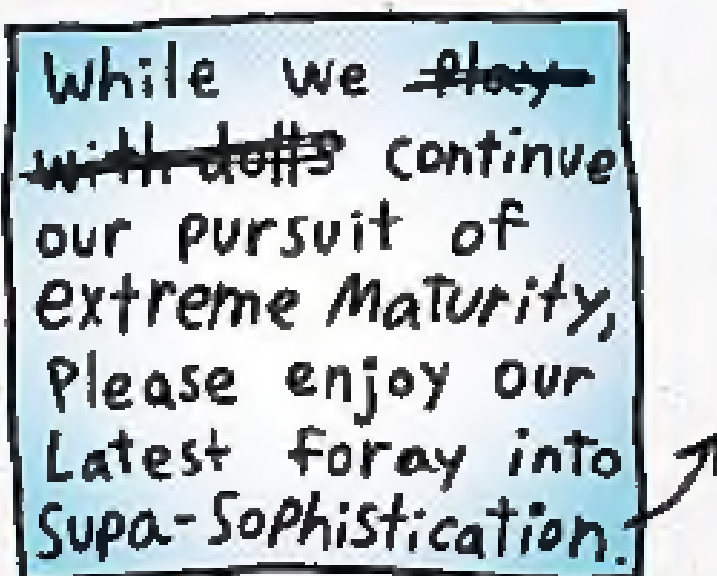 While we play
with dolls continue
our pursuit of
extreme Maturity,
Please enjoy our
Latest foray into
Supa-Sophistication.